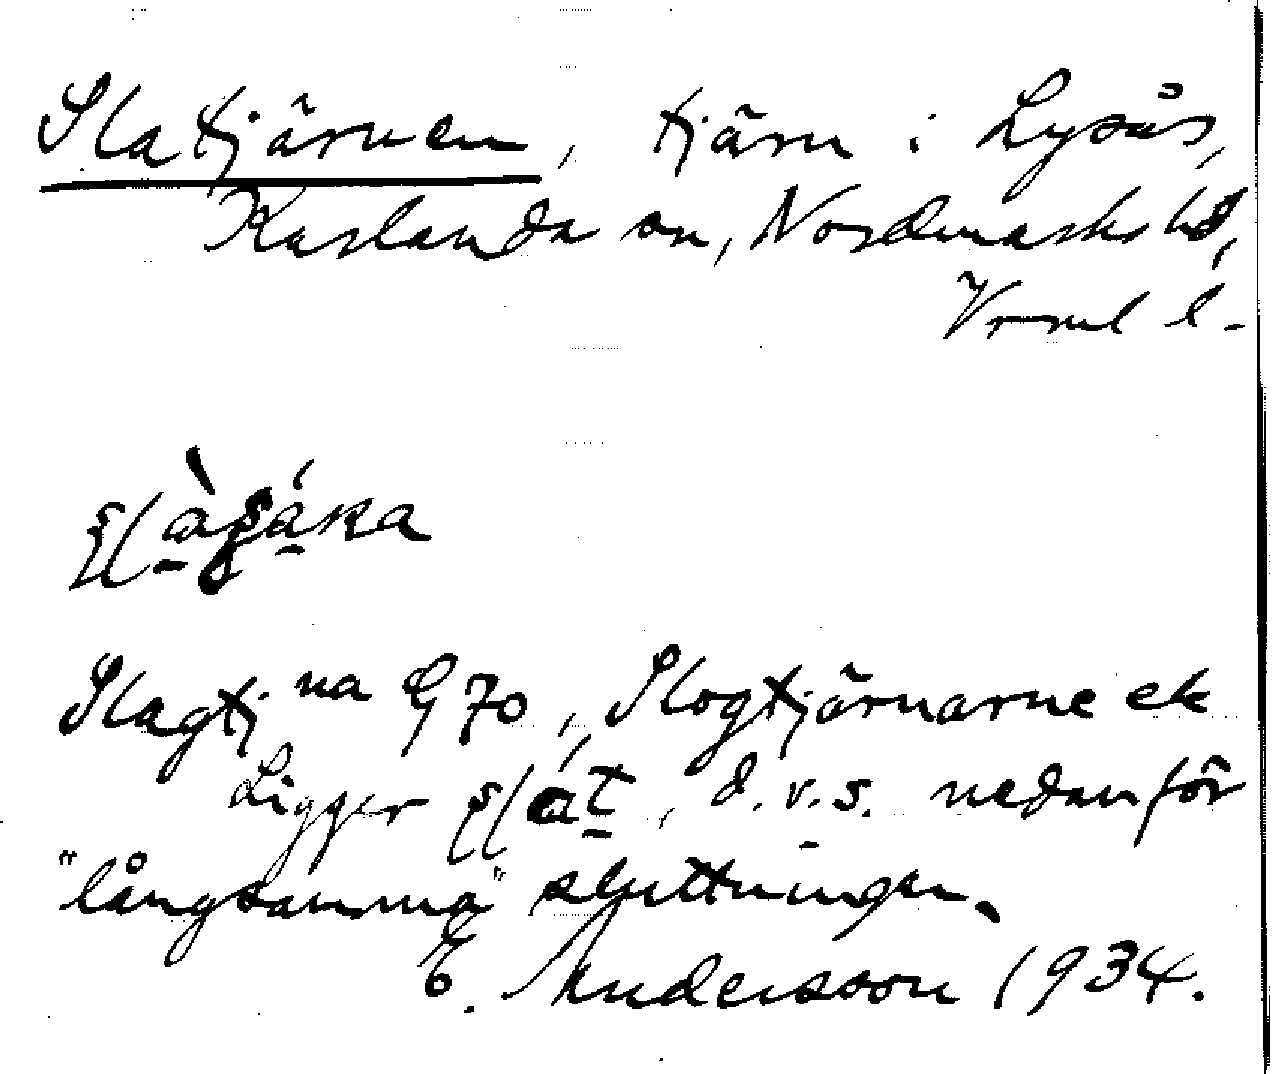 Slatjärnen, tjärn i Lysås,
Karlanda sn, Nordmarks hd,
Vrml l.
Slagtjna G 70, Slogtjärnarne ek
Ligger , d.v.s. nedanför
"långsamma" sluttningen.
E. Andersson 1934.